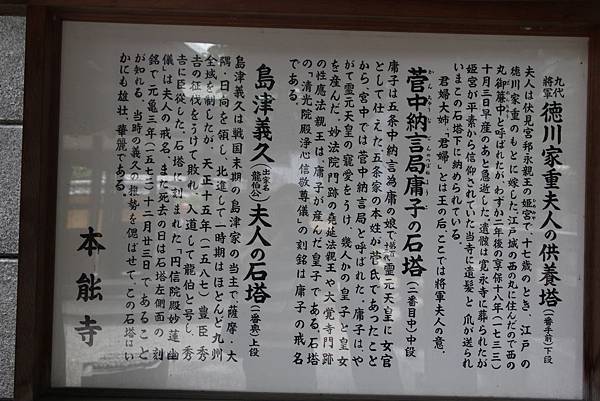 九代将軍 徳川家重夫人の供養塔(一番手前)下段
夫人は伏見宮邦永親王の姫宮で、十七歳のとき、江戸の
徳川家重のもとに嫁した。江戸城の西の丸に住んだので西の
丸御簾中と呼ばれたが、わずか二年後の享保十八年(一七三三)
十月三日早産のあと急逝した。遺骸は寛永寺に葬られたが
姫宮が平素から信仰されていた当寺に遺髪と爪が送られ
いまこの石塔下に納められている。
君婦大姉、「君婦」とは王の后、ここでは将軍夫人の意。
菅中納言局庸子の石塔(二番目中)中段
かんちゅうなごんのつぼねようし
庸子は五条中納言為庸の娘で、霊元天皇に女官
として仕えた。五条家の本姓が菅氏であったこと
から、宮中では菅中納言局と呼ばれた。庸子はや
がて霊元天皇の寵愛をうけ、幾人かの皇子と皇女
を産んだ。妙法院門跡の堯延法親王や大覚寺門跡
の性應法親王は、庸子が産んだ皇子である。石塔
の「清光院殿浄心信敬尊儀」の刻銘は庸子の戒名
である。
島津義久(出家名龍伯公)夫人の石塔(一番奥)上段
島津義久は戦国末期の島津家の当主で、薩摩・大
隅・日向を領し、北進して一時期はほとんど九州
全域を制したが、天正十五年(一五八七)豊臣秀
吉の征伐をうけて敗れ、入道して龍伯と号し、秀
吉に臣従した。石塔に刻まれた「円信院殿妙蓮幽
儀」は夫人の戒名、また死去の日は石塔左側面の刻
銘で、元亀三年(一五七二)十二月廿三日であること
が知れる。当時の義久の権勢を偲ばせて、この石塔はい
かにも雄壮、華麗である。
本能寺